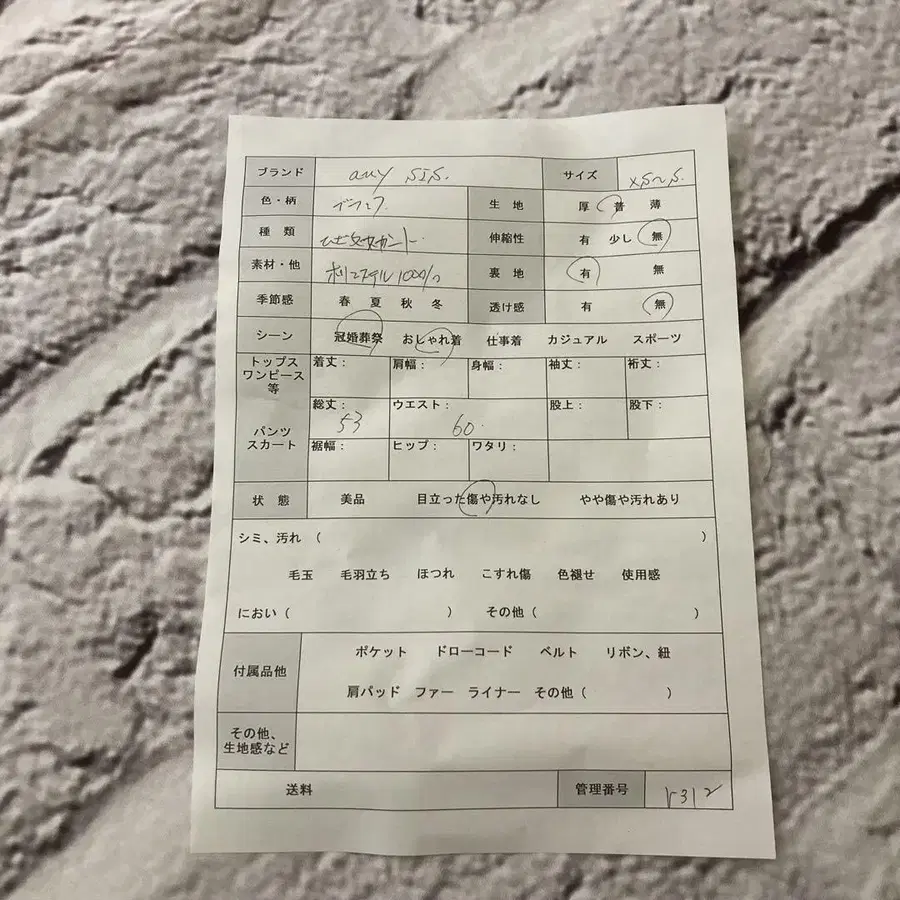 ブランド any SIS. サイズ XS~S.
色・柄 生地 厚 普 薄
種類 ひざ丈スカート 伸縮性 有 少し 無
素材・他 ポリエステル100% 裏地 有 無
季節感 春 夏 秋 冬 透け感 有 無
シーン 冠婚葬祭 おしゃれ着 仕事着 カジュアル スポーツ
トップス ワンピース 等 着丈: 肩幅: 身幅: 袖丈: 裄丈:
パンツ スカート 総丈: 53 ウエスト: 60 股上: 股下:
裾幅: ヒップ: ワタリ:
状態 美品 目立った傷や汚れなし やや傷や汚れあり
シミ、汚れ ( )
毛玉 毛羽立ち ほつれ こすれ傷 色褪せ 使用感
におい ( ) その他 ( )
付属品他 ポケット ドローコード ベルト リボン、紐
肩パッド ファー ライナー その他 ( )
その他、
生地感など
送料 管理番号 r312